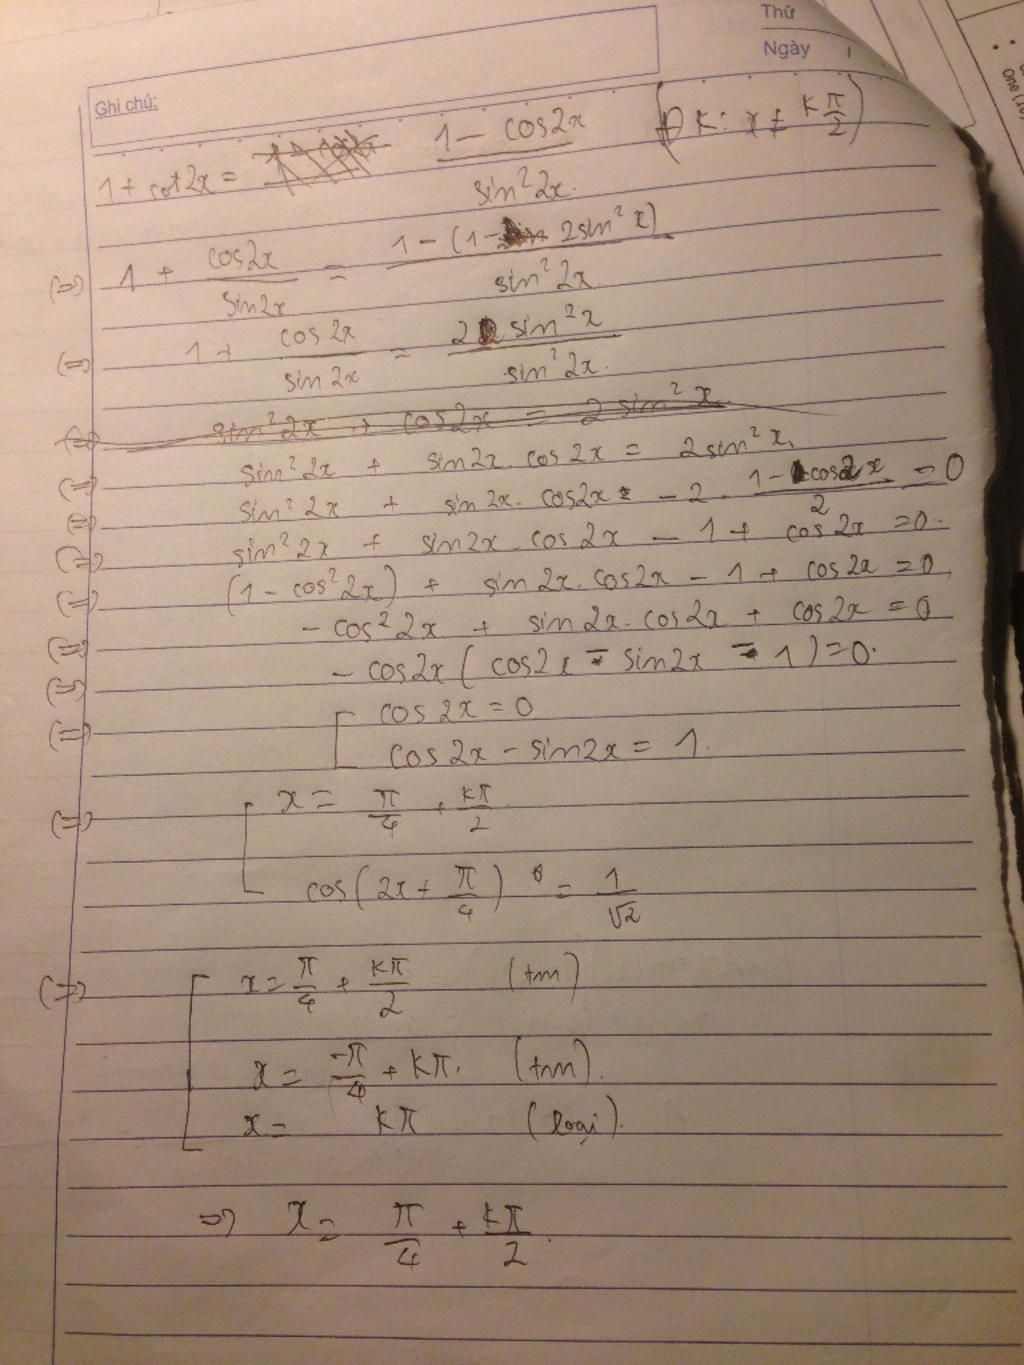 Thứ
Ngày
Ghi chú:
1 + cot2x = (1 - cos2x)/(sin²2x) (ĐK: x ≠ kπ/2)
(=) 1 + cos2x/sin2x = (1 - (1 - 2sin²x))/(sin²2x)
(=) 1 + cos2x/sin2x = (2 sin²x)/(sin²2x)
(=) sin²2x + cos2x = 2 sin²x
(=) sin²2x + sin2x. cos2x = 2sin²x
(=) sin²2x + sin2x. cos2x - 2 . (1 - cos2x)/2 = 0
(=) sin²2x + sin2x . cos2x - 1 + cos2x = 0.
(=) (1 - cos²2x) + sin2x. cos2x - 1 + cos2x = 0
(=) - cos²2x + sin2x. cos2x + cos2x = 0
(=) - cos2x ( cos2x - sin2x - 1) = 0.
(=) [ cos2x = 0
cos2x - sin2x = 1.
(=) [ x = π/4 + kπ/2
cos(2x + π/4) = 1/√2
(=) [ x = π/4 + kπ/2 (tm)
x = -π/4 + kπ. (tm).
x = kπ (loại).
=> x = π/4 + kπ/2.